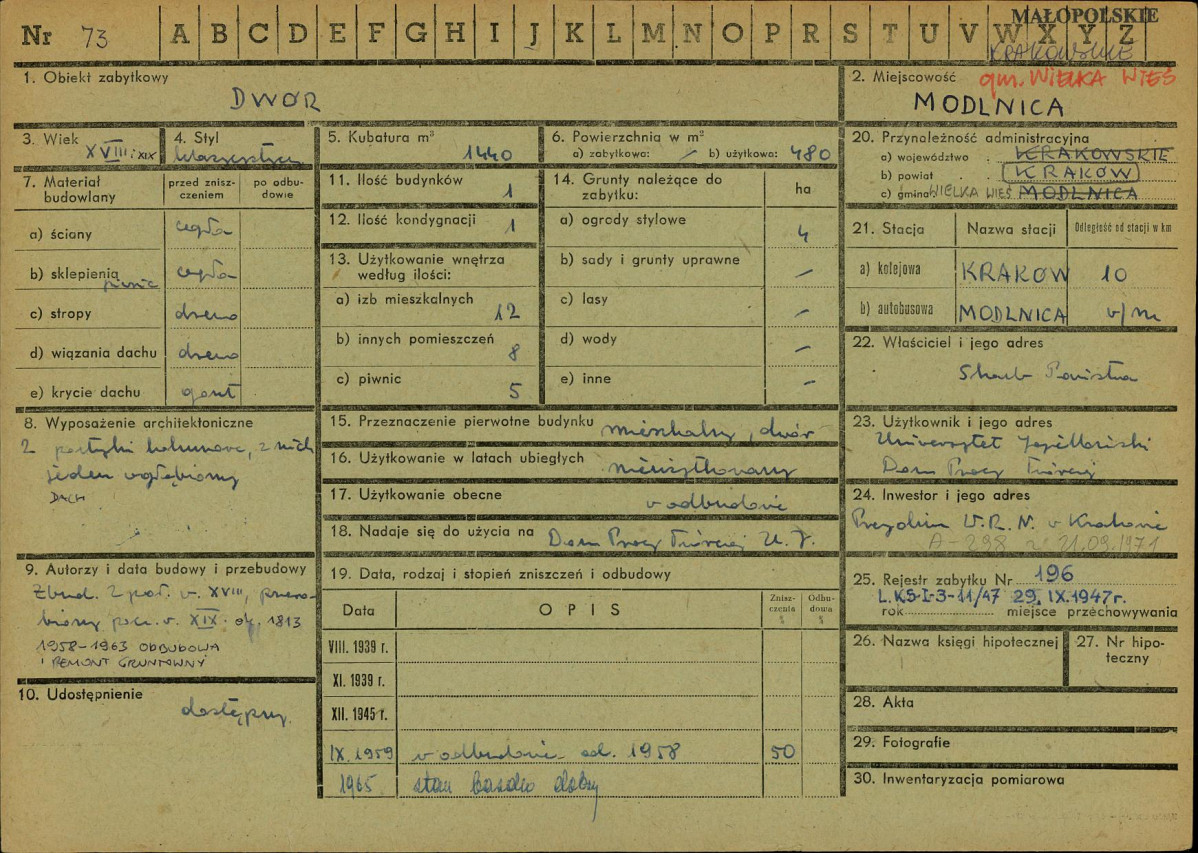 Nr 73 A B C D E F G H I J K L M N O P R S T U V W X Y Z
MAŁOPOLSKIE
KRAKOWSKIE
1. Obiekt zabytkowy
DWÓR
2. Miejscowość gm. WIELKA WIEŚ
MODLNICA
3. Wiek
XVIII i XIX
4. Styl
5. Kubatura m³
1440
6. Powierzchnia w m²
a) zabytkowa: — b) użytkowa: 480
7. Materiał budowlany
przed zniszczeniem
po odbudowie
a) ściany cegła
b) sklepienia piwnic cegła
c) stropy drewno
d) wiązania dachu drewno
e) krycie dachu gont
8. Wyposażenie architektoniczne
2 portyki kolumnowe, z nich
jeden wgłębiony
DACH
9. Autorzy i data budowy i przebudowy
Zbud. 2 poł. w. XVIII, przero-
biony pocz. w. XIX. ok. 1813
1958-1963 ODBUDOWA
i REMONT GRUNTOWNY
10. Udostępnienie
dostępny.
11. Ilość budynków 1
12. Ilość kondygnacji 1
13. Użytkowanie wnętrza
według ilości:
a) izb mieszkalnych 12
b) innych pomieszczeń 8
c) piwnic 5
14. Grunty należące do
zabytku:
ha
a) ogrody stylowe 4
b) sady i grunty uprawne —
c) lasy —
d) wody —
e) inne —
15. Przeznaczenie pierwotne budynku mieszkalny, dwór
16. Użytkowanie w latach ubiegłych nieużytkowany
17. Użytkowanie obecne w odbudowie
18. Nadaje się do użycia na Dom Pracy Twórczej U. J.
19. Data, rodzaj i stopień zniszczeń i odbudowy
Data OPIS Zniszczenia % Odbudowa %
VIII. 1939 r.
XI. 1939 r.
XII. 1945 r.
IX. 1959 w odbudowie od. 1958 50
1965 stan bardzo dobry
20. Przynależność administracyjna
a) województwo KRAKOWSKIE
b) powiat KRAKÓW
c) gmina WIELKA WIEŚ MODLNICA
21. Stacja Nazwa stacji Odległość od stacji w km
a) kolejowa KRAKÓW 10
b) autobusowa MODLNICA w/m
22. Właściciel i jego adres
Skarb Państwa
23. Użytkownik i jego adres
Uniwersytet Jagielloński
Dom Pracy Twórczej
24. Inwestor i jego adres
Prezydium W. R. N. w Krakowie
A-298 z 21.09.1971
25. Rejestr zabytku Nr 196
L.KS-I-3-11/47 29. IX. 1947 r.
rok miejsce przechowywania
26. Nazwa księgi hipotecznej
27. Nr hipo-
teczny
28. Akta
29. Fotografie
30. Inwentaryzacja pomiarowa